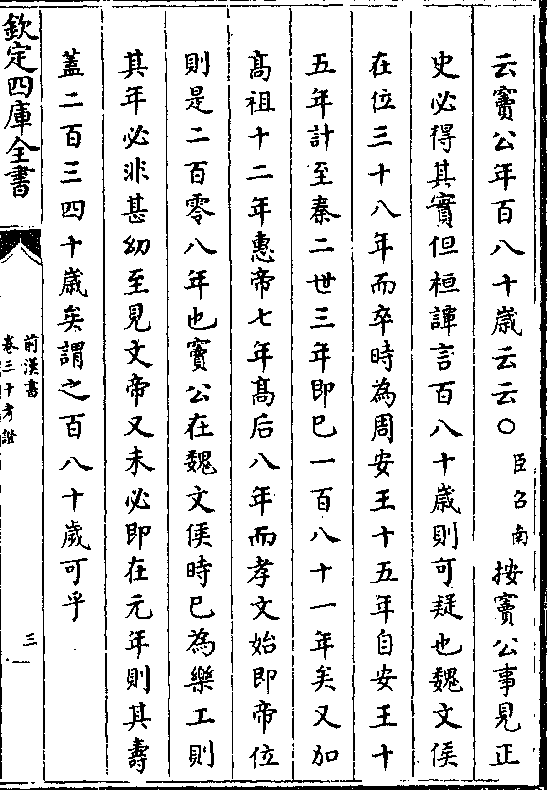 云竇公年百八十歳云云〇臣召南按竇公事見正
史必得其實但桓譚言百八十歳則可疑也魏文侯
在位三十八年而卒時為周安王十五年自安王十
五年計至秦二世三年即已一百八十一年矣又加
髙祖十二年惠帝七年髙后八年而孝文始即帝位
則是二百零八年也竇公在魏文侯時已為樂工則
其年必非甚幼至見文帝又未必即在元年則其壽
蓋二百三四十歳矣謂之百八十歲可乎
欽定四庫全書
前漢書
卷三十考證
三